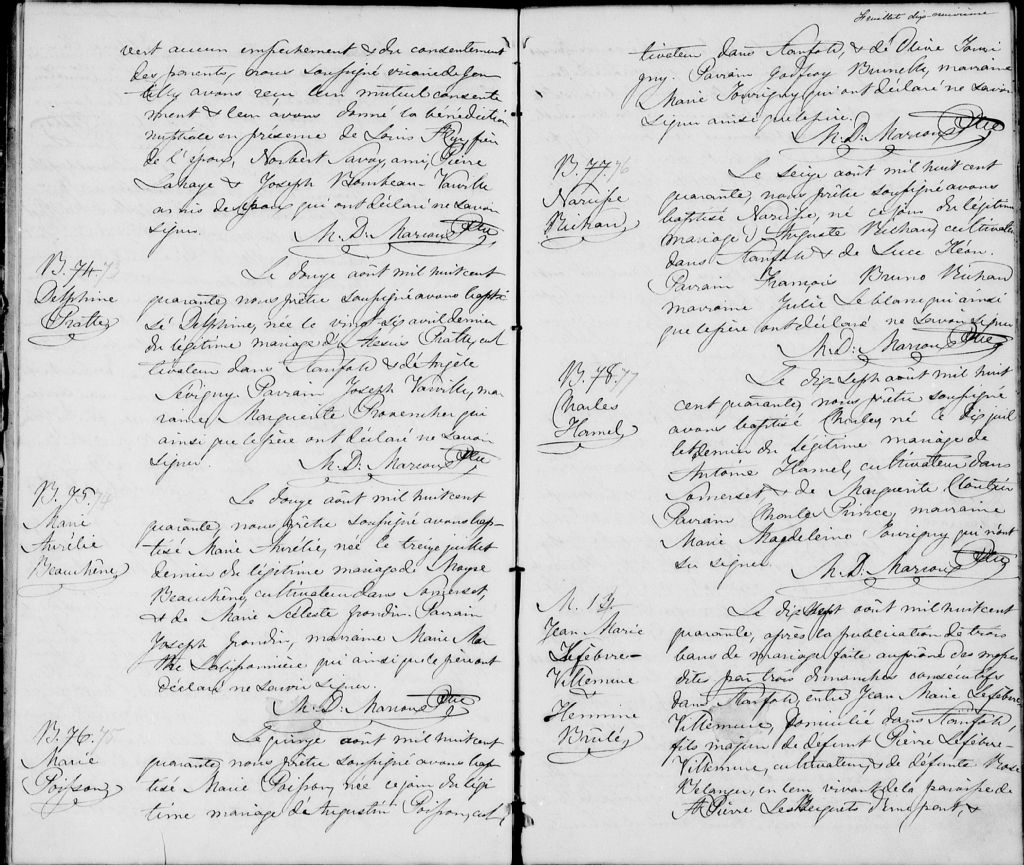 vert aucun empêchement & du consentement
des parents, nous soussigné vicaire de Gen
tilly avons reçu leur mutuel consente
ment & leur avons donné la bénédiction
nuptiale en présence de Louis frère
de l'époux, Norbert Savoy ami, Pierre
Lahaye & Joseph Bombeau-
amis de qui ont déclaré ne savoir
signer.
M. D. Marcoux Ptre
B. 74. 73
Delphine
Pratte
Le douze août mil huit cent
quarante, nous prêtre soussigné avons bapti
sé Delphine, née le vingt six avril dernier
du légitime mariage d'Alexis Pratte, cul
tivateur dans Stanfold & d'Angèle
Sévigny. Parrain Joseph mar
raine, Marguerite Provencher qui
ainsi que le père ont déclaré ne savoir
signer.
M. D. Marcoux Ptre
B. 75. 74
Marie
Aurélie
Beauchêne
Le douze août mil huit cent
quarante, nous prêtre soussigné avons bap-
tisé Marie Aurélie, née le treize juillet
dernier du légitime mariage de Moyse
Beauchêne, cultivateur dans Somerset,
& de Marie Séleste Grondin. Parrain
Joseph Grondin, marraine Marie Mar
the qui ainsi que le père ont
déclaré ne savoir signer.
M. D. Marcoux Ptre
B. 76. 75
Marie
Poisson
Le quinze août mil huit cent
quarante, nous prêtre soussigné avons bap
tisé Marie Poisson, née ce jour du légi
time mariage de Augustin Poisson, cul
Feuillet dix-neuvième
tivateur dans Stanfold, & de Olive Touri
gny. Parrain Godfroy Brunelle, marraine
Marie Tourigny qui ont déclaré ne savoir
signer ainsi que le père.
M. D. Marcoux Ptre
B. 77. 76
Narcisse
Richard
Le seize août mil huit cent
quarante, nous prêtre soussigné avons
baptisé Narcisse, né ce jour du légitime
mariage d'Auguste Richard, cultivateur
dans Stanfold & de Luce Héon.
Parrain François Bruno Richard
marraine Julie Leblanc qui ainsi
que le père ont déclaré ne savoir signer
M. D. Marcoux Ptre
B. 78. 77
Charles
Hamel
Le dix sept août mil huit
cent quarante, nous prêtre soussigné
avons baptisé Charles, né le dix juil
let dernier du légitime mariage de
Antoine Hamel, cultivateur dans
Somerset, & de Marguerite Cloutier
Parrain Charles Prince, marraine
Marie Magdeleine Tourigny qui n'ont
su signer.
M. D. Marcoux Ptre
M. 13.
Jean Marie
Lefebvre-
Villemure
&
Hermine
Brûlé
Le dix sept août mil huit cent
quarante, après la publication de trois
bans de mariage faite au prône des messes
dites par trois dimanches consécutifs
dans Stanfold, entre Jean Marie Lefebvre
Villemure, domicilié dans Stanfold
fils majeur de défunt Pierre Lefebvre-
Villemure, cultivateur, & de défunte Rose
Belanger, en leur vivant de la paroisse de
St Pierre Les Becquets d'une part, &